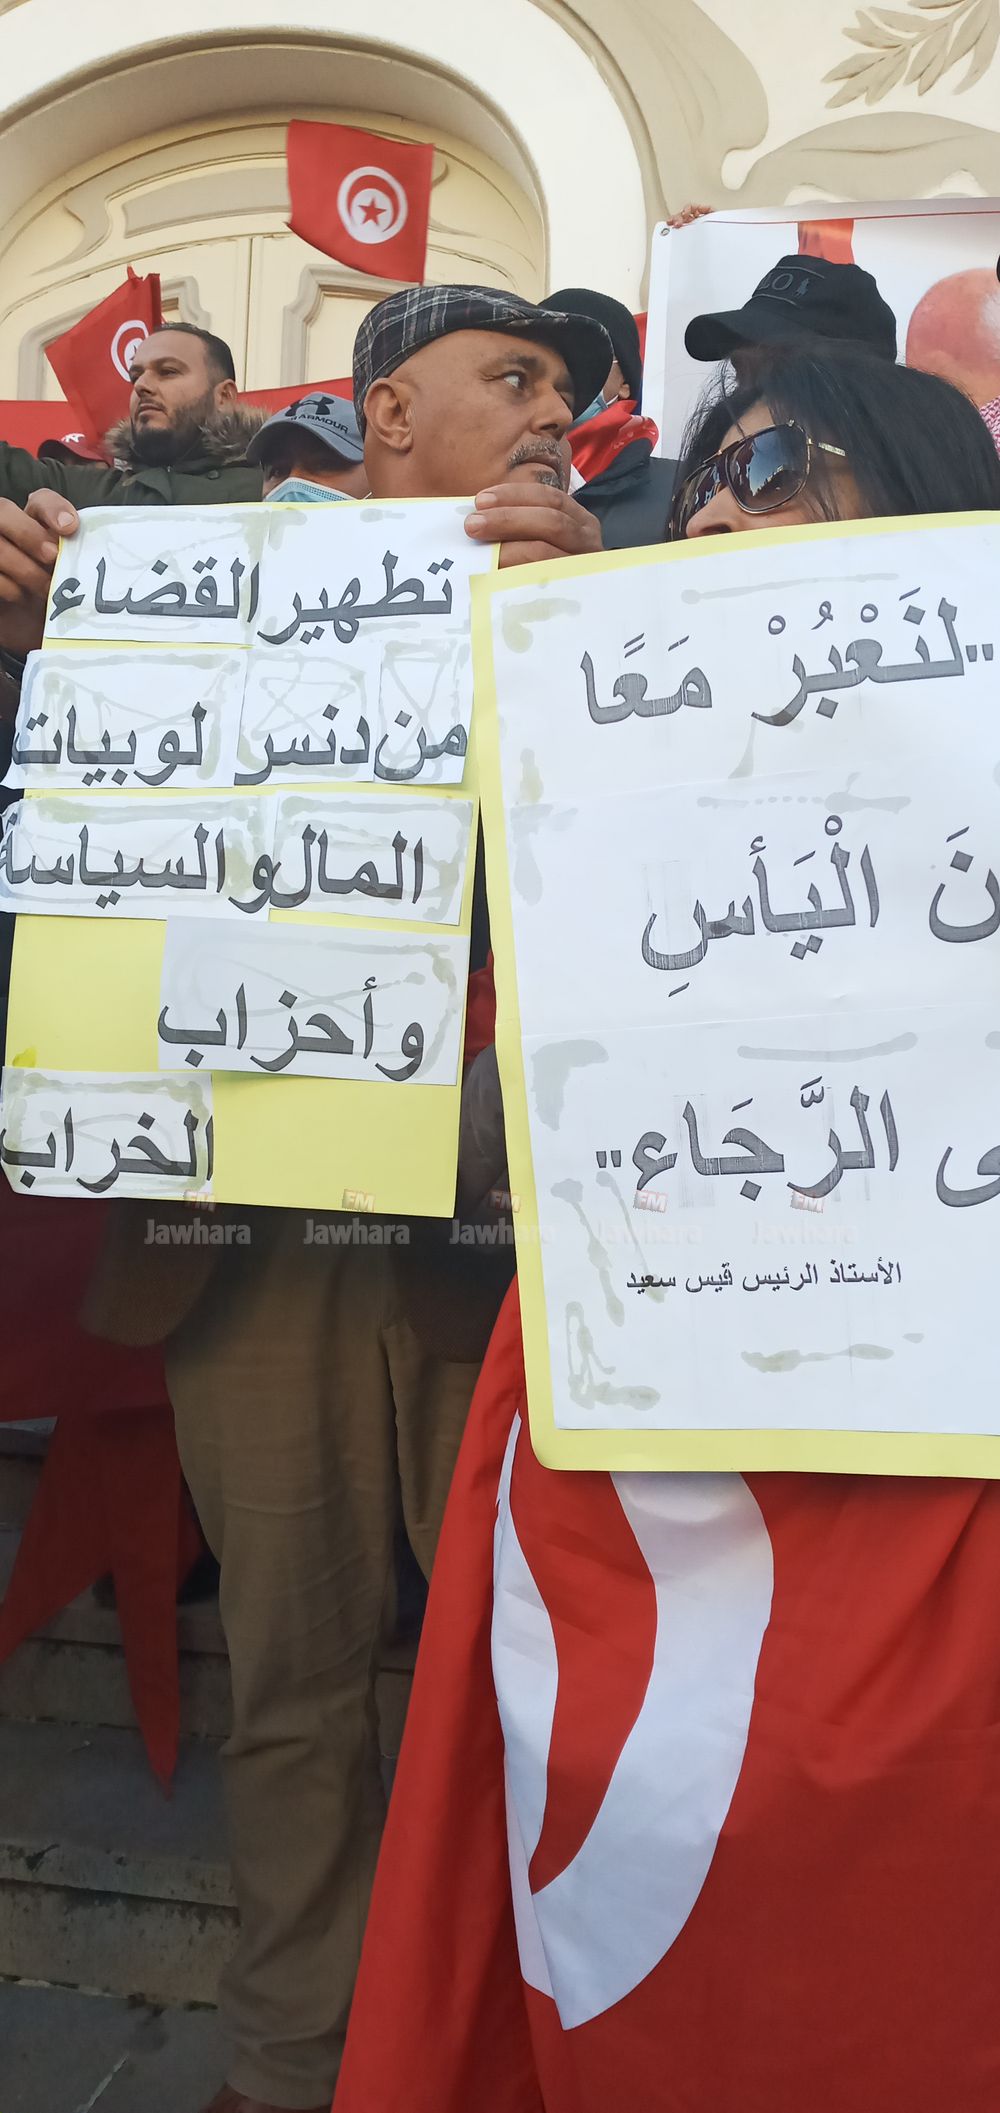 تطهير القضاء
من دنس لوبيات
المال و السياسة
وأحزاب
الخراب
"لنَعْبُرْ مَعًا
الْيَأسِ
الرَّجَاء"
الأستاذ الرئيس قيس سعيد
UNDER ARMOUR
FM FM FM FM FM
Jawhara Jawhara Jawhara Jawhara Jawhara